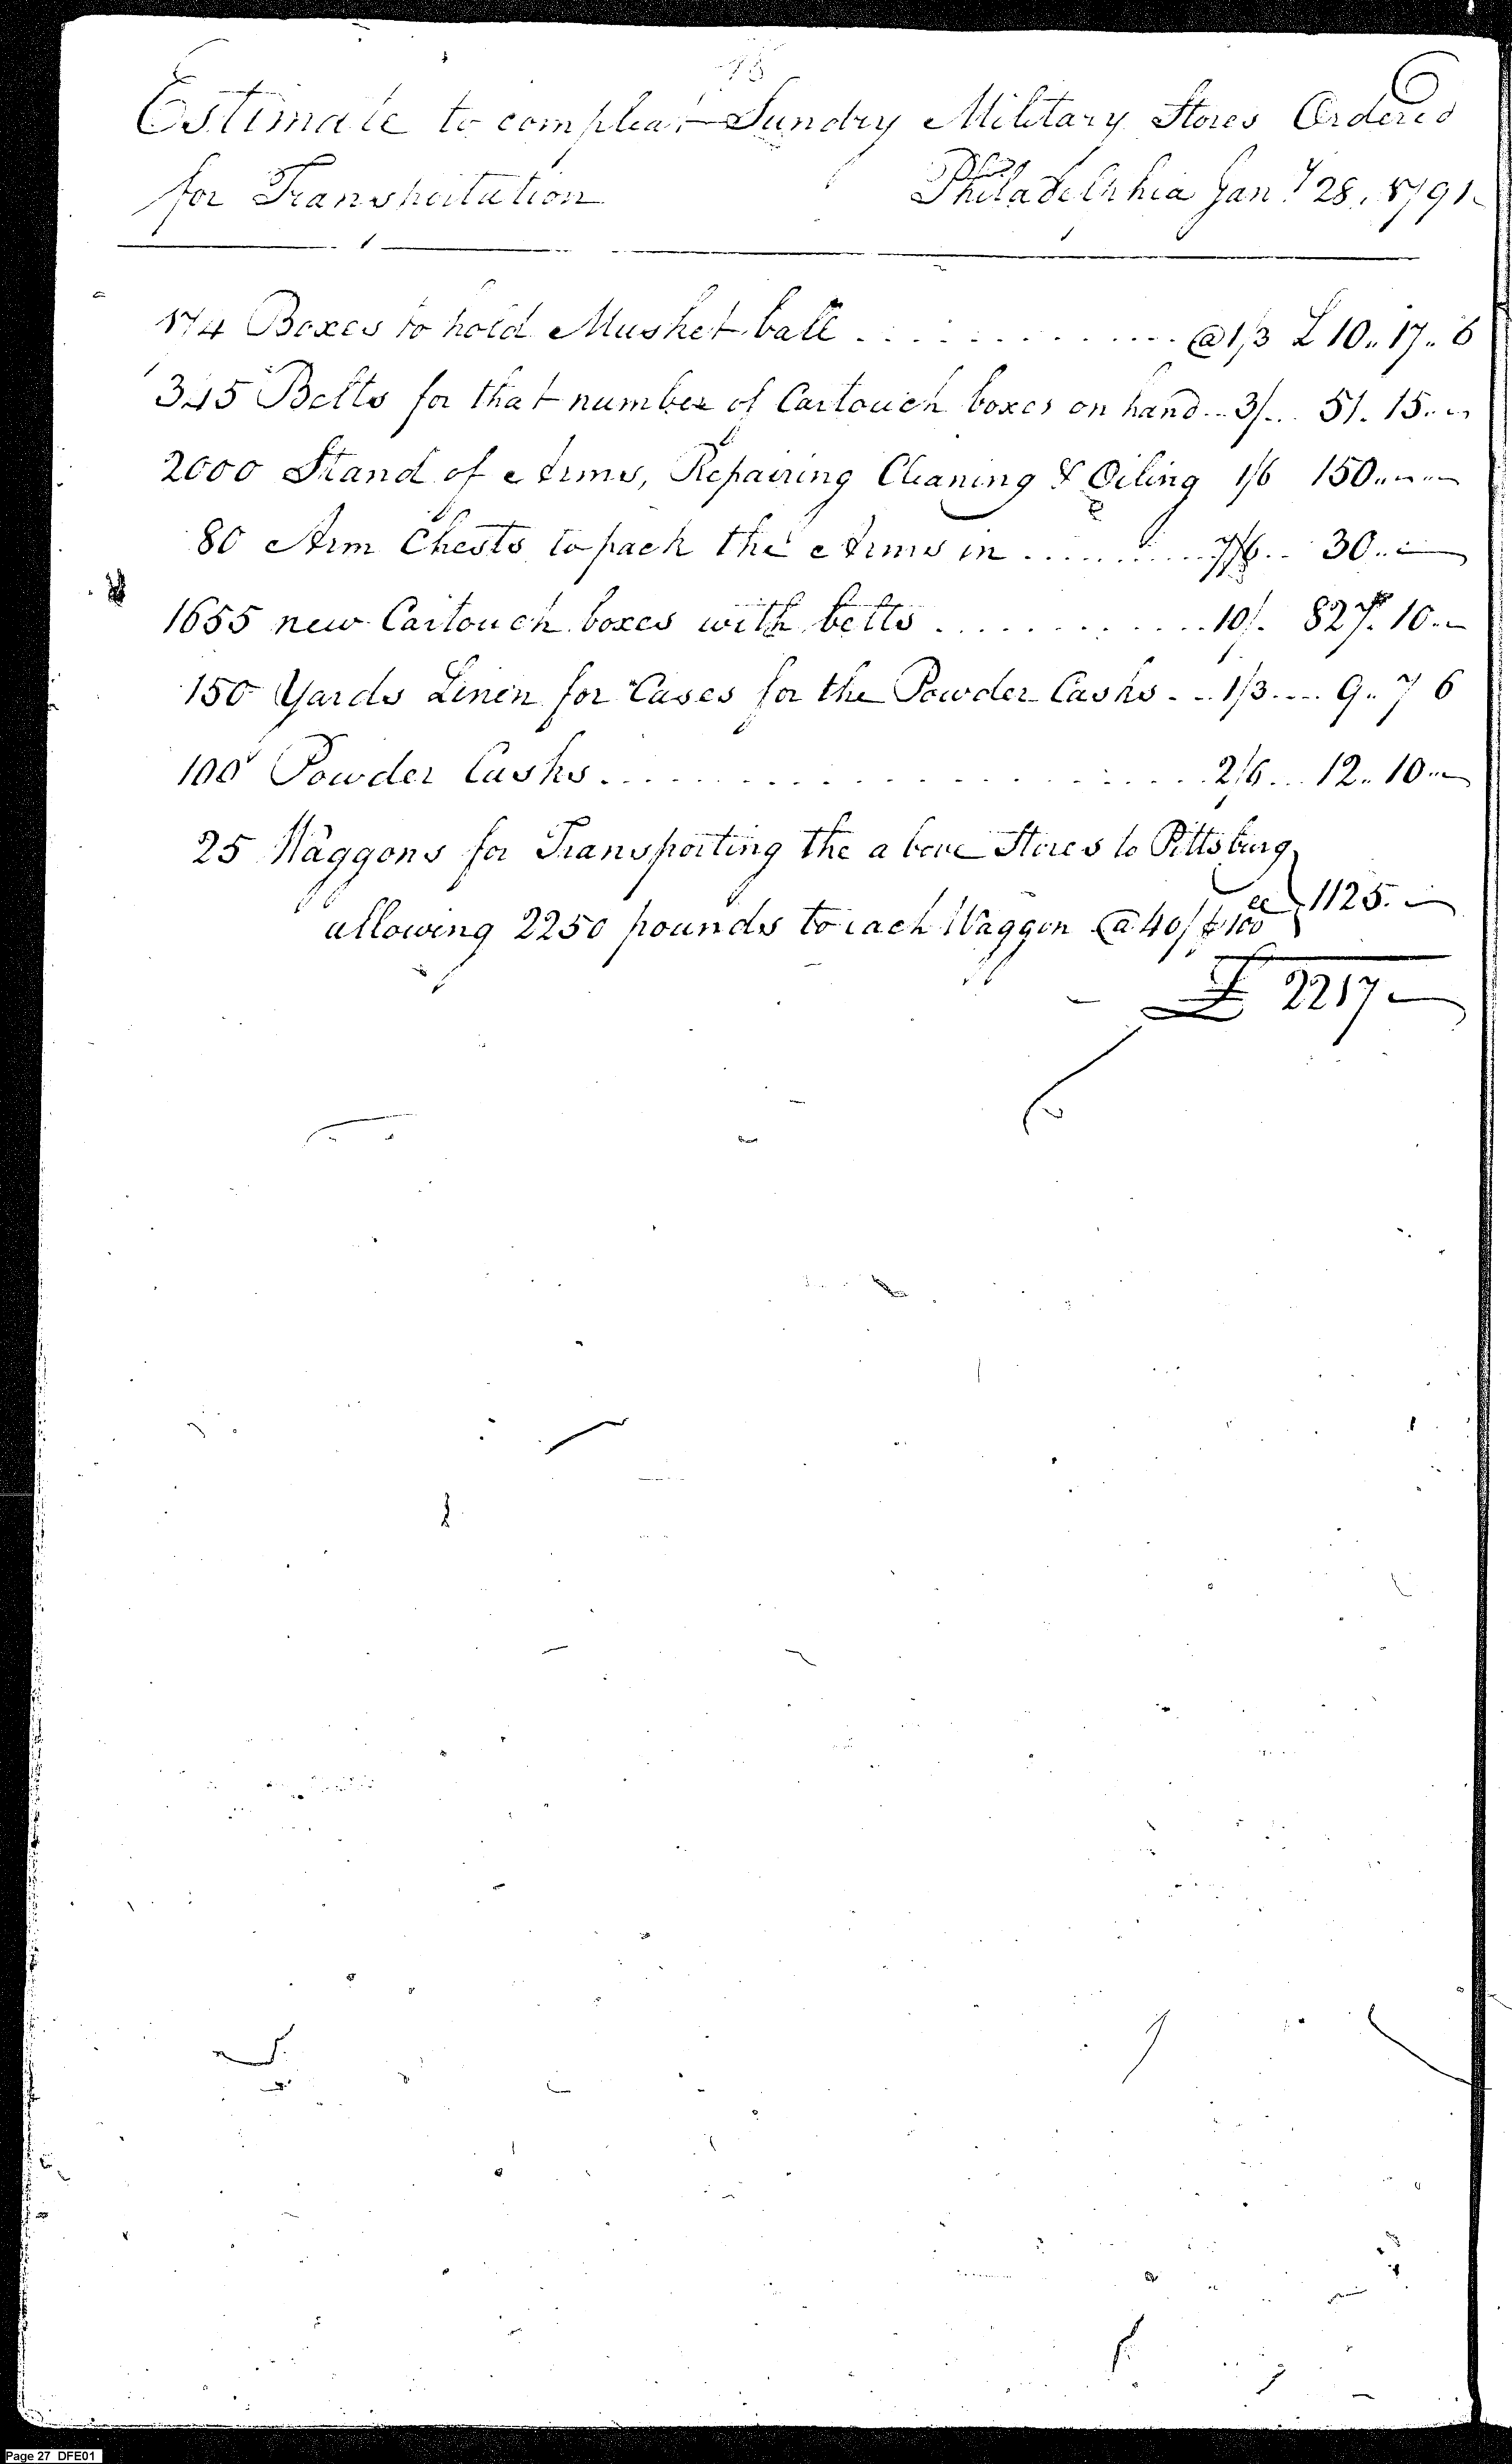 Estimate to compleat Sundry Military Stores Ordered
for Transportation Philadelphia Jany 28, 1791
174 Boxes to hold Musket ball ............. @ 1/3 £ 10.. 17.. 6
345 Belts for that number of Cartouch boxes on hand... 3/... 51. 15..
2000 Stand of Arms, Repairing Cleaning & Oiling 1/6 150..
80 Arm Chests to pack the Arms in .......... 7/6... 30..
1655 new Cartouch boxes with belts ............. 10/. 827. 10..
150 Yards Linen for Cases for the Powder Casks... 1/3.... 9.. 7 6
100 Powder Casks....................... 2/6... 12.. 10..
25 Waggons for Transporting the above Stores to Pittsburg
allowing 2250 pounds to each Waggon @ 40/ 100 1125.
£ 2217
Page 27 DFE01